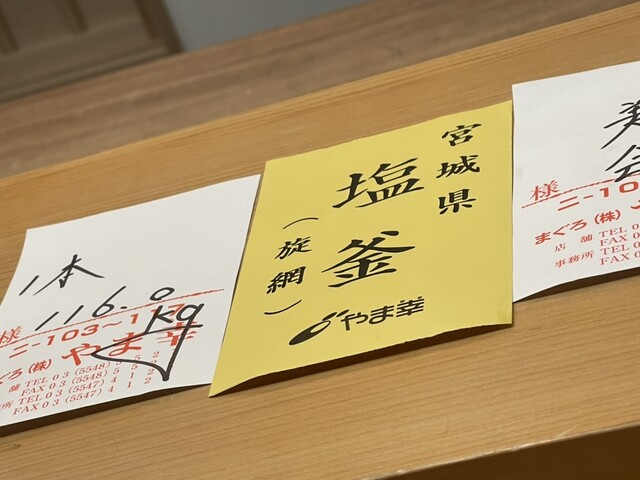 1本
116.0
kg
様
ニ-103~117
ぐろ(株) やま幸
舗 TEL 03 (5548)
FAX 03 (5548)
所 TEL 03 (5547) 4 1 2
FAX 03 (5547) 4 1 2
宮城県
塩釜
(旋網)
やま幸
様
ニ-10
まぐろ(株)
店舗 TEL 0
FAX 0
事務所 TEL 0
FAX 0